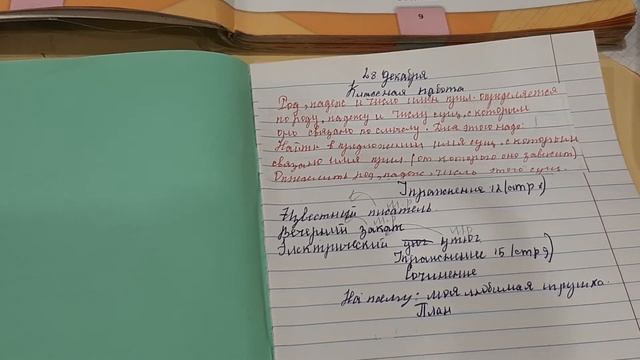 9
28 декабря
Классная работа
Род, падеж и число имён прил. определяется
по роду, падежу и числу сущ, с которым
оно связано по смыслу. Для этого надо:
Найти в предложении имя сущ, с которым
связано имя прил (от которого оно зависит)
Определить род, падеж, число этого сущ.
Упражнения 12 (стр 8)
м.р
Известный писатель
м.р
Вечерний закат
м.р
Электрический утюг
Упражнение 15 (стр 9)
Сочинение
На тему: моя любимая игрушка.
План